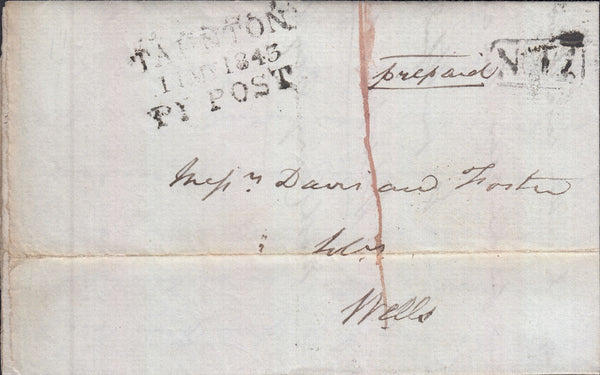 TAUNTON
1843
PY POST
prepaid
No
Messrs Davis and Foster
Solrs
Wells